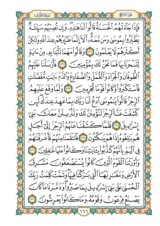 فَإِذَا جَآءَتْهُمُ ٱلْحَسَنَةُ قَالُوا۟ لَنَا هَٰذِهِۦ وَإِن تُصِبْهُمْ سَيِّئَةٌ
يَطَّيَّرُوا۟ بِمُوسَىٰ وَمَن مَّعَهُۥٓ أَلَآ إِنَّمَا طَٰٓئِرُهُمْ عِندَ ٱللَّهِ وَلَٰكِنَّ
أَكْثَرَهُمْ لَا يَعْلَمُونَ ١٣١ وَقَالُوا۟ مَهْمَا تَأْتِنَا بِهِۦ مِنْ ءَايَةٍ
لِّتَسْحَرَنَا بِهَا فَمَا نَحْنُ لَكَ بِمُؤْمِنِينَ ١٣٢ فَأَرْسَلْنَا عَلَيْهِمُ
ٱلطُّوفَانَ وَٱلْجَرَادَ وَٱلْقُمَّلَ وَٱلضَّفَادِعَ وَٱلدَّمَ ءَايَٰتٍ مُّفَصَّلَٰتٍ
فَٱسْتَكْبَرُوا۟ وَكَانُوا۟ قَوْمًا مُّجْرِمِينَ ١٣٣ وَلَمَّا وَقَعَ عَلَيْهِمُ
ٱلرِّجْزُ قَالُوا۟ يَٰمُوسَى ٱدْعُ لَنَا رَبَّكَ بِمَا عَهِدَ عِندَكَ لَئِن
كَشَفْتَ عَنَّا ٱلرِّجْزَ لَنُؤْمِنَنَّ لَكَ وَلَنُرْسِلَنَّ مَعَكَ بَنِىٓ
إِسْرَٰٓءِيلَ ١٣٤ فَلَمَّا كَشَفْنَا عَنْهُمُ ٱلرِّجْزَ إِلَىٰٓ أَجَلٍ
هُم بَٰلِغُوهُ إِذَا هُمْ يَنكُثُونَ ١٣٥ فَٱنتَقَمْنَا مِنْهُمْ فَأَغْرَقْنَٰهُمْ
فِى ٱلْيَمِّ بِأَنَّهُمْ كَذَّبُوا۟ بِـَٔايَٰتِنَا وَكَانُوا۟ عَنْهَا غَٰفِلِينَ ١٣٦
وَأَوْرَثْنَا ٱلْقَوْمَ ٱلَّذِينَ كَانُوا۟ يُسْتَضْعَفُونَ مَشَٰرِقَ
ٱلْأَرْضِ وَمَغَٰرِبَهَا ٱلَّتِى بَٰرَكْنَا فِيهَا وَتَمَّتْ كَلِمَتُ رَبِّكَ
ٱلْحُسْنَىٰ عَلَىٰ بَنِىٓ إِسْرَٰٓءِيلَ بِمَا صَبَرُوا۟ وَدَمَّرْنَا مَا كَانَ
يَصْنَعُ فِرْعَوْنُ وَقَوْمُهُۥ وَمَا كَانُوا۟ يَعْرِشُونَ ١٣٧
١٦٦